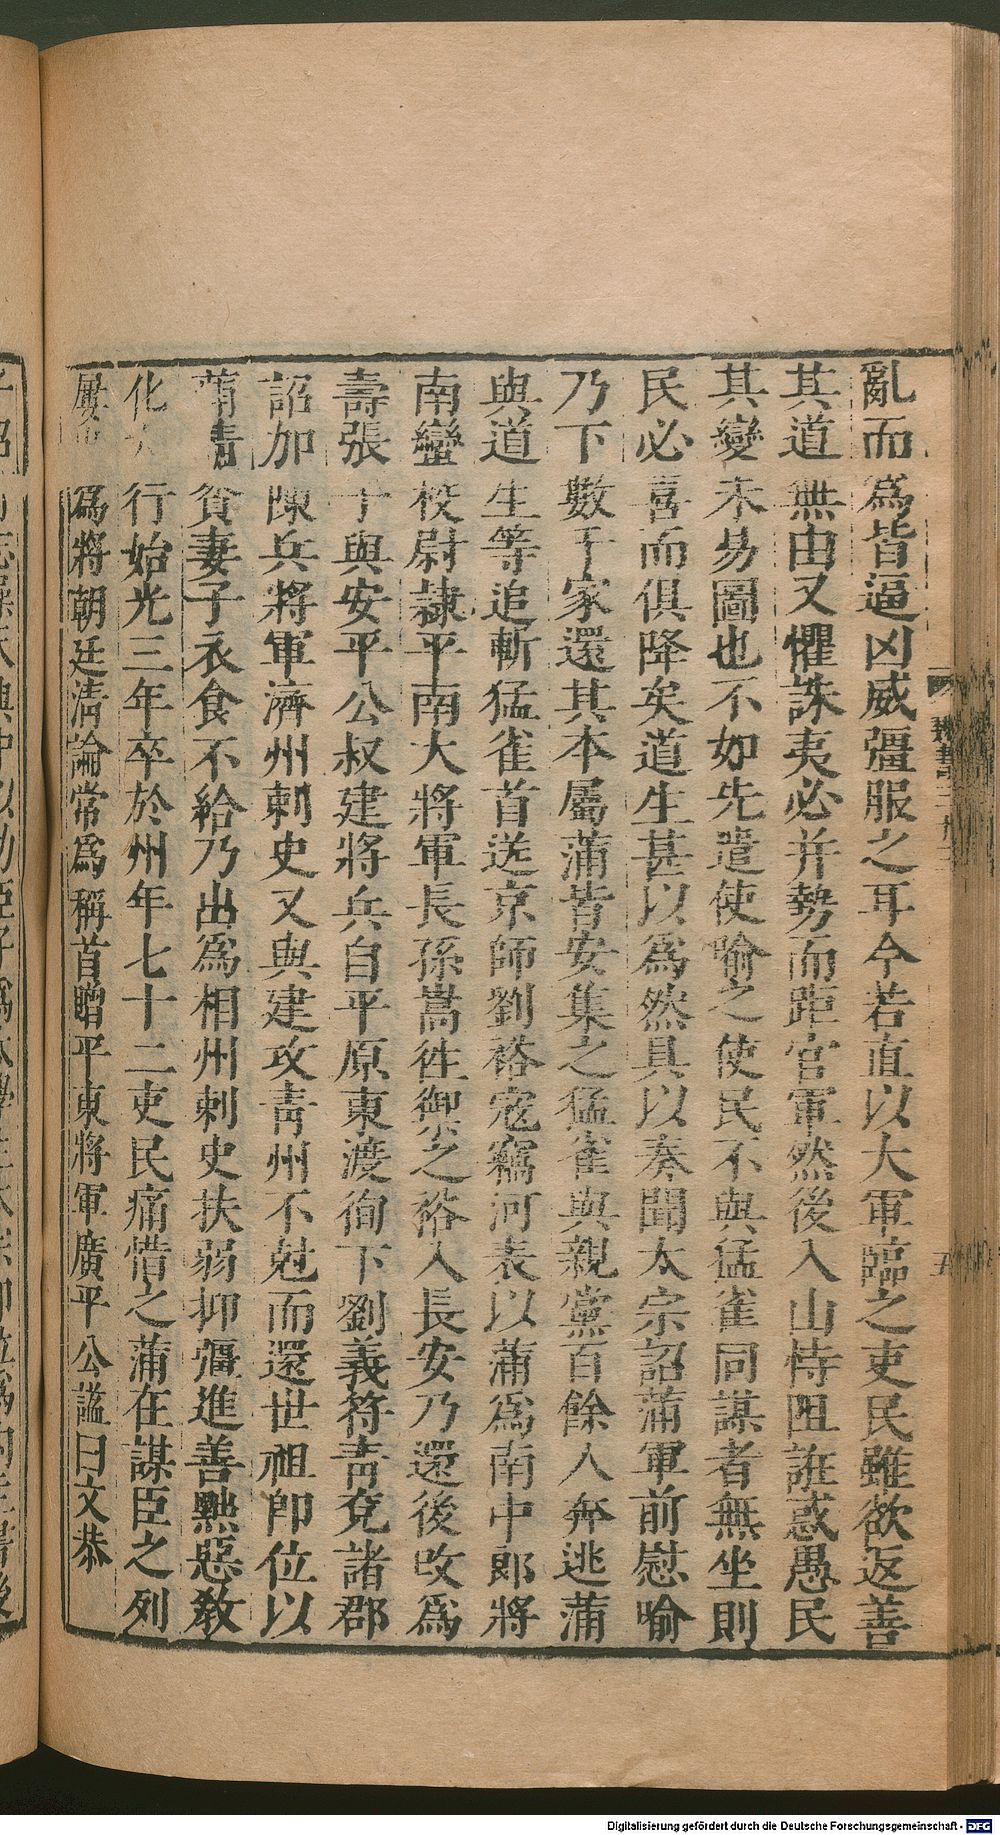 亂而為皆逼凶威彊服之耳今若直以大軍臨之吏民雖欲返善
其道無由又懼誅夷必并勢而距官軍然後入山恃阻誑惑愚民
其變未易圖也不如先遣使喻之使民不與猛雀同謀者無坐則
民必喜而俱降矣道生甚以為然具以奏聞太宗詔蒲軍前慰喻
乃下數千家還其本屬蒲皆安集之猛雀與親黨百餘人奔逃蒲
與道生等追斬猛雀首送京師劉裕寇竊河表以蒲為南中郎將
南蠻校尉隷平南大將軍長孫嵩徃禦之裕入長安乃還後改為
壽張子與安平公叔建將兵自平原東渡徇下劉義符青兗諸郡
詔加陳兵將軍濟州刺史又與建攻青州不尅而還世祖即位以
蒲清貧妻子衣食不給乃出為相州刺史扶弱抑彊進善黜惡教
化大行始光三年卒於州年七十二吏民痛惜之蒲在謀臣之列
屢為將朝廷清論常為稱首贈平東將軍廣平公謚曰文恭
五
Digitalisierung gefördert durch die Deutsche Forschungsgemeinschaft - DFG